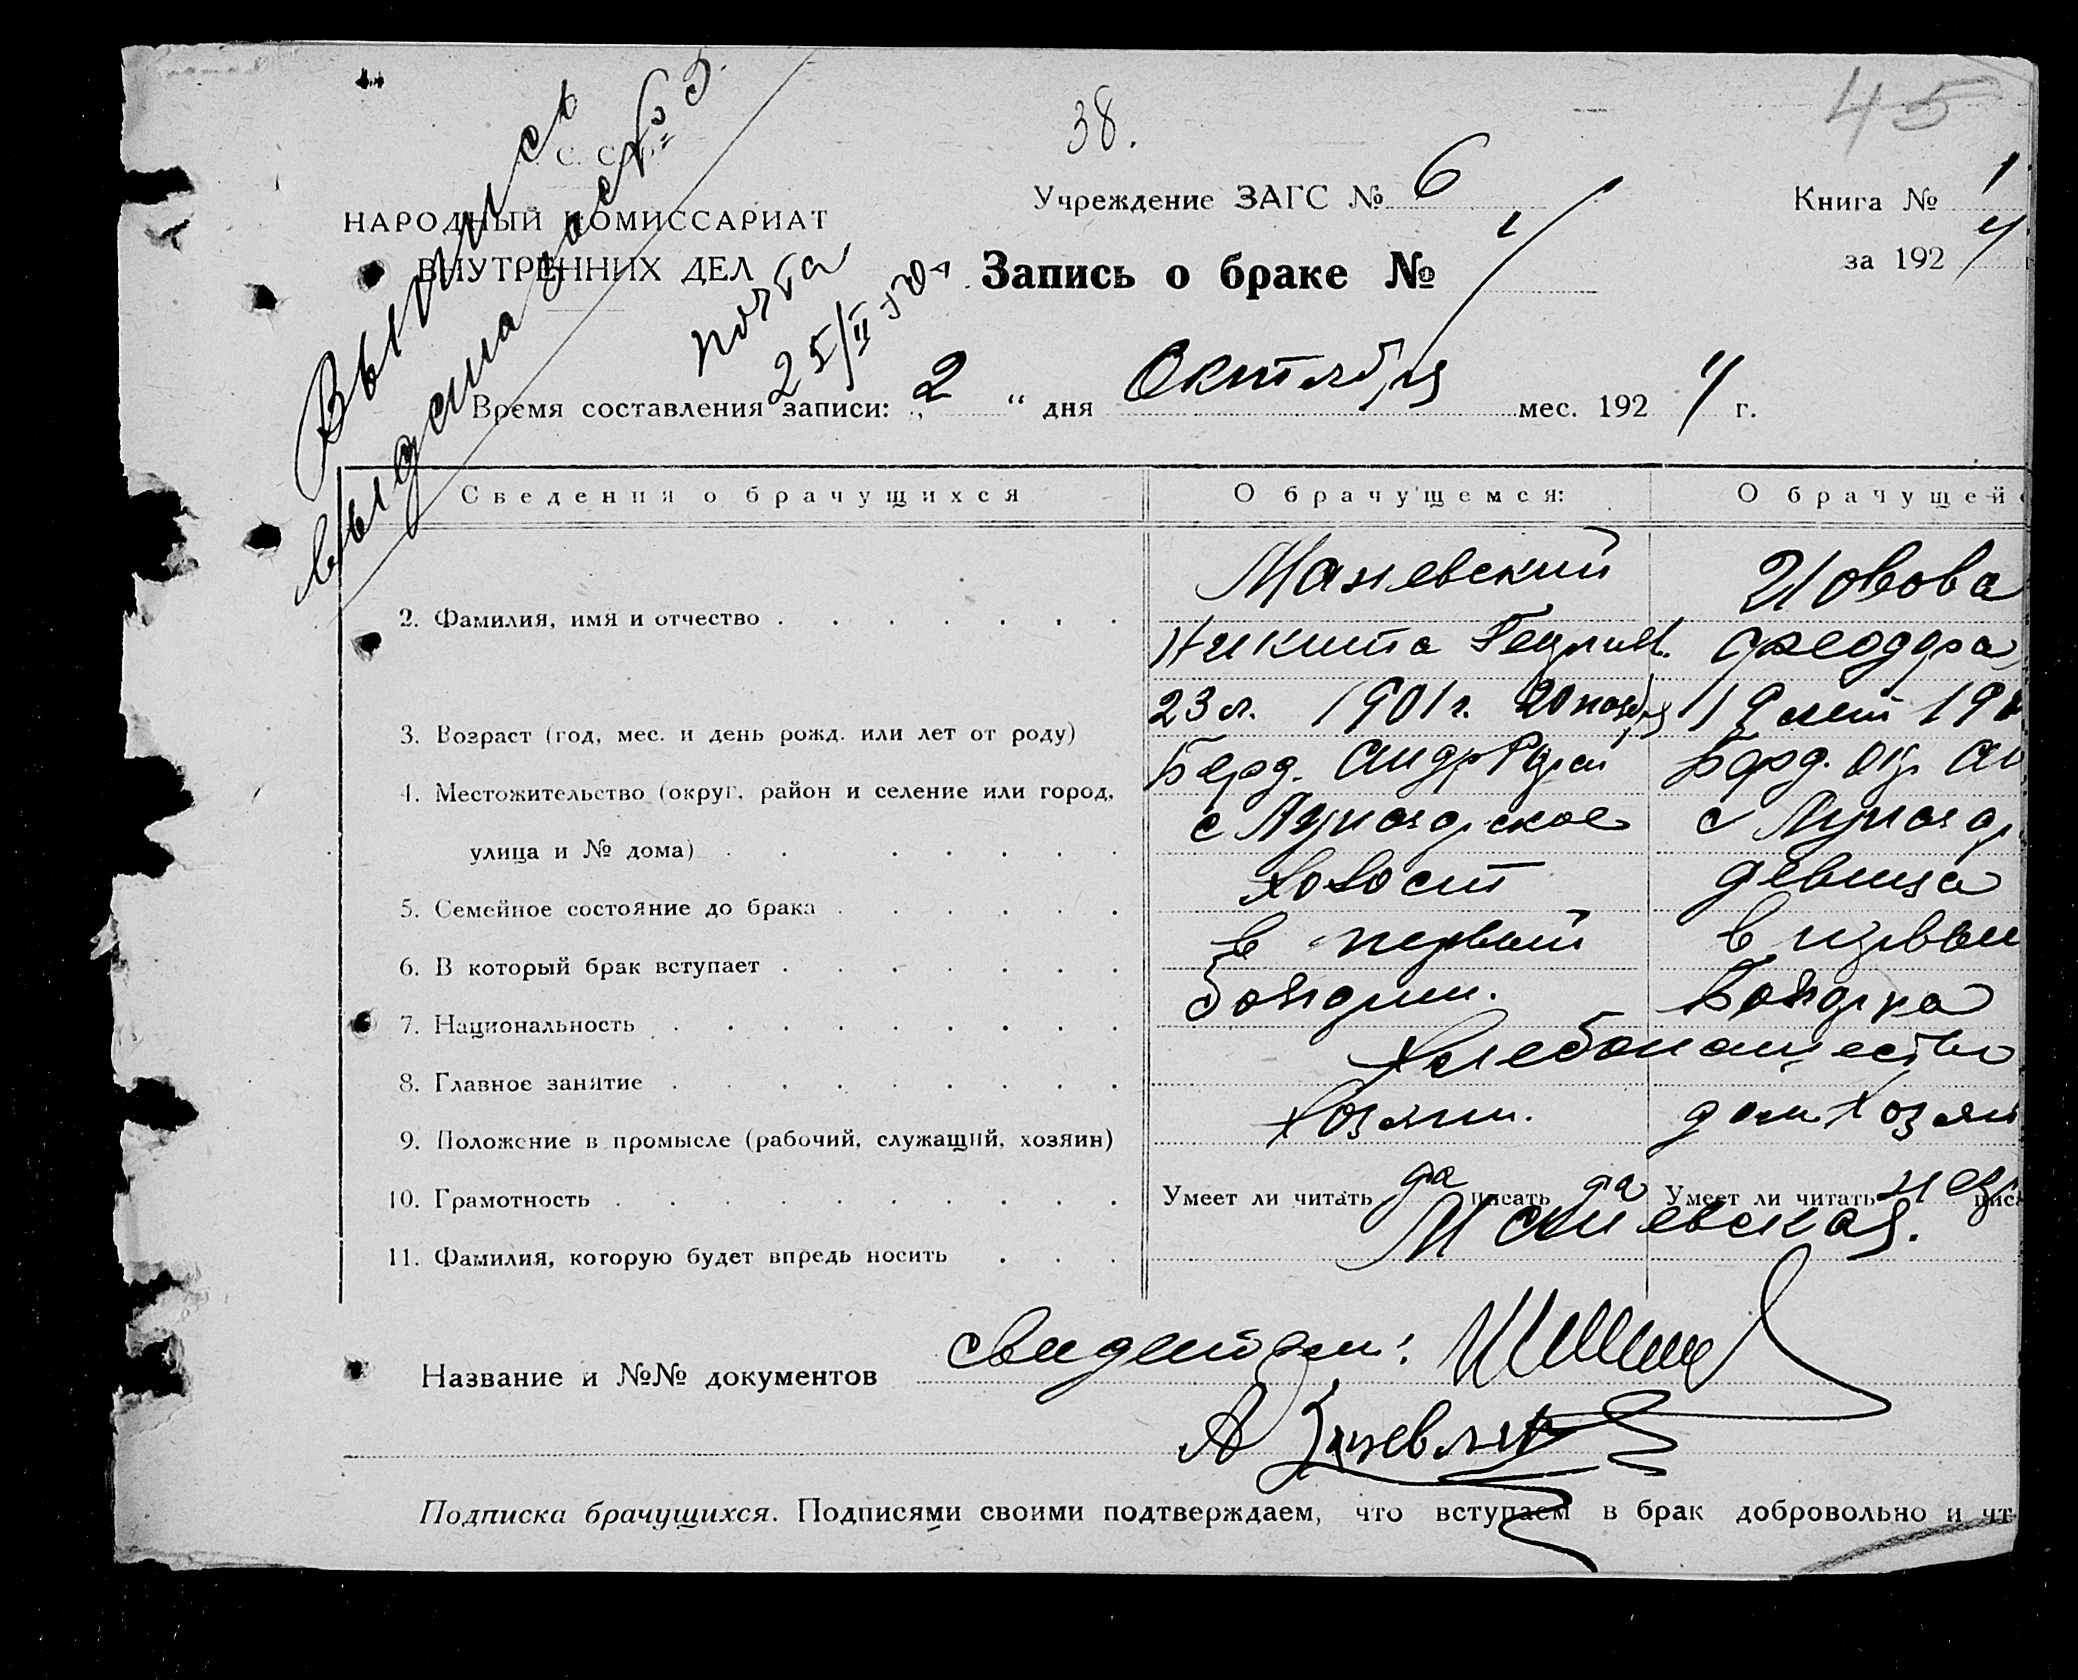 45
38.
С. С.
Выпись
выдана за № 3.
почта
НАРОДНЫЙ КОМИССАРИАТ
ВНУТРЕННИХ ДЕЛ
Учреждение ЗАГС № 6
Книга № 1
за 1924
Запись о браке № 1
Время составления записи: „ 2 “ дня Октября мес. 1924 г.
Сведения о брачущихся О брачущемся: О брачущей
Маневский Иовова
2. Фамилия, имя и отчество
Никита Феодора
3. Возраст (год, мес. и день рожд. или лет от роду) 23 л. 1901 г. 20 ноября 19 лет 19
4. Местожительство (округ, район и селение или город, Берд. Андр Рай Берд. Ок.
улица и № дома) с
5. Семейное состояние до брака холост девица
6. В который брак вступает в первый в первый
7. Национальность
8. Главное занятие Хлебопашество
9. Положение в промысле (рабочий, служащий, хозяин) Хозяин. дом хозяй
10. Грамотность Умеет ли читать да писать да Умеет ли читать не пис
11. Фамилия, которую будет впредь носить Маневская.
Название и №№ документов свидетели:
Подписка брачущихся. Подписями своими подтверждаем, что вступаем в брак добровольно и чт